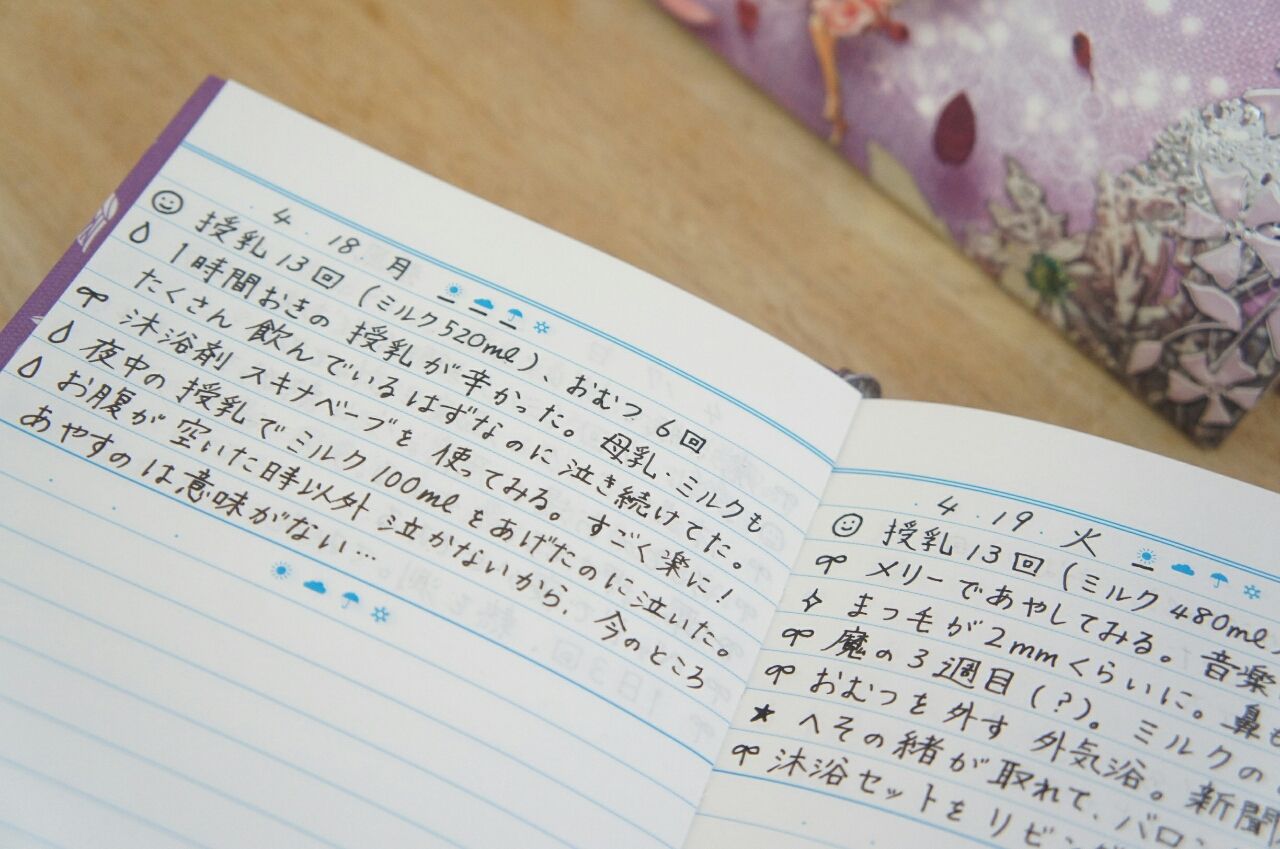 4. 18. 月
授乳13回（ミルク520ml）、おむつ6回
1時間おきの授乳が辛かった。母乳・ミルクも
たくさん飲んでいるはずなのに泣き続けてた。
沐浴剤スキナベーブを使ってみる。すごく楽に！
夜中の授乳でミルク100mlをあげたのに泣いた。
お腹が空いた時以外泣かないから、今のところ
あやすのは意味がない…
4. 19. 火
授乳13回（ミルク480ml
メリーであやしてみる。音楽
まつ毛が2mmくらいに。鼻も
魔の3週目（？）。ミルクの
おむつを外す外気浴。新聞
へその緒が取れて、バロン
沐浴セットをリビング